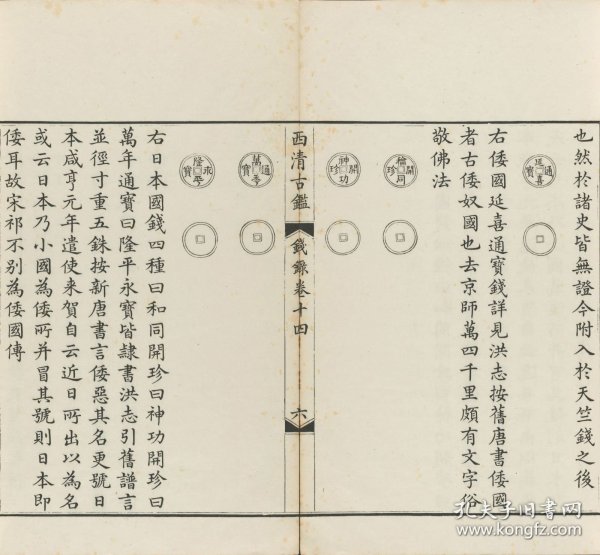 也然於諸史皆無證今附入於天竺錢之後
延喜通寶
右倭國延喜通寶錢詳見洪志按舊唐書倭國
者古倭奴國也去京師萬四千里頗有文字俗
敬佛法
開珍
神功開珍
西清古鑑
錢錄卷十四
六
萬年通寶
隆平永寶
右日本國錢四種曰和同開珍曰神功開珍曰
萬年通寶曰隆平永寶皆隸書洪志引舊譜言
並徑寸重五銖按新唐書言倭惡其名更號日
本咸亨元年遣使來賀自云近日所出以為名
或云日本乃小國為倭所并冒其號則日本即
倭耳故宋祁不別為倭國傳
孔夫子旧书网
www.kongfz.com